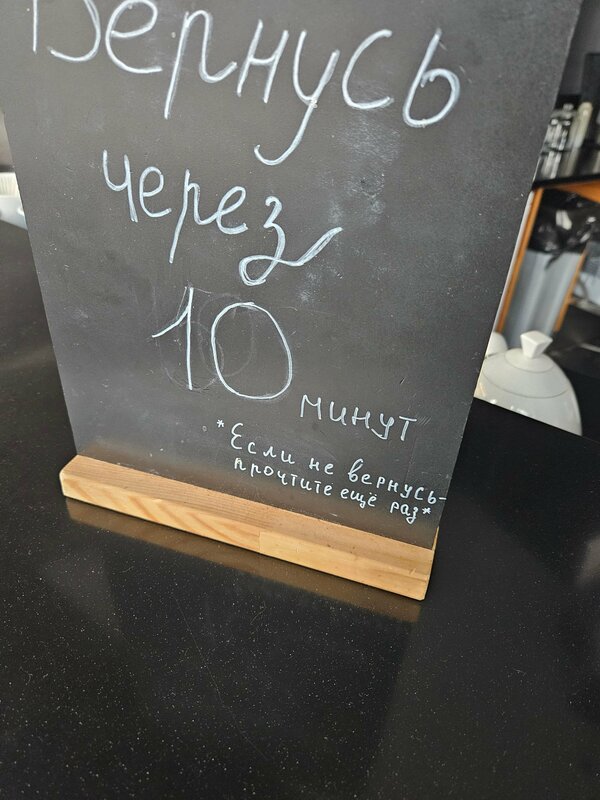 Вернусь
через
10
минут
*Если не вернусь-
прочтите ещё раз*